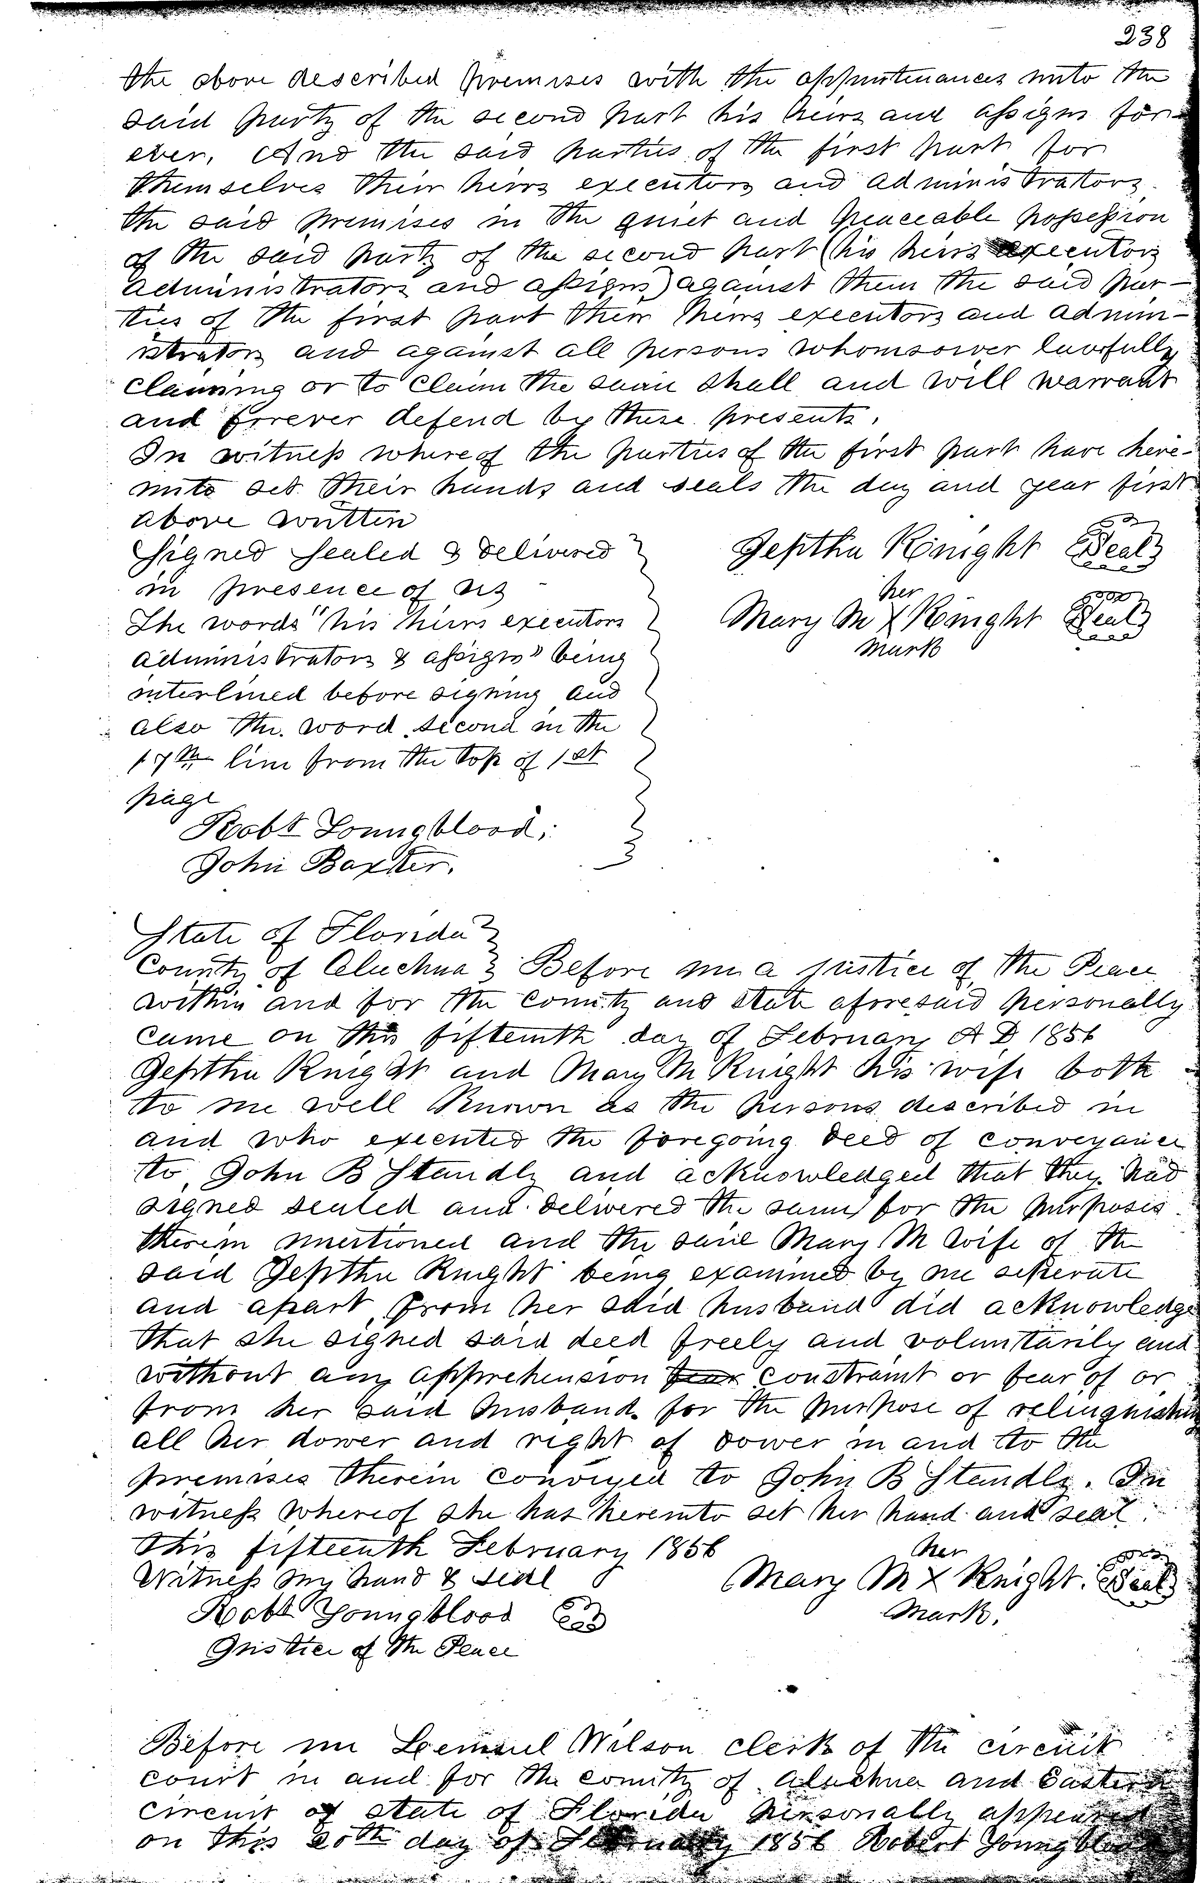 238
the above described premises with the appurtenances unto the
said party of the second part his heirs and assigns for-
ever. And the said parties of the first part for
themselves their heirs executors and administrators
the said premises in the quiet and peaceable possession
of the said party of the second part (his heirs executors
administrators and assigns) against them the said par-
ties of the first part their heirs executors and admin-
istrators and against all persons whomsower lawfully
claiming or to claim the same shall and will warrant
and forever defend by these presents.
In witness whereof the parties of the first part have here-
unto set their hands and seals the day and year first
above written
Signed Sealed & delivered
in presence of us
Jeptha Knight Seal
The words "his heirs executors
administrators & assigns" being
interlined before signing and
also the word second in the
17th line from the top of 1st
page
her
Mary M X Knight Seal
mark
Robt Youngblood;
John Baxter.
State of Florida
County of Alachua Before me a justice of the Peace
within and for the county and state aforesaid personally
came on this fifteenth day of February A D 1856
Jeptha Knight and Mary M Knight his wife both
to me well known as the persons described in
and who executed the foregoing deed of conveyance
to John B Standly and acknowledged that they had
signed sealed and delivered the same for the purposes
therein mentioned and the said Mary M wife of the
said Jeptha Knight being examined by me seperate
and apart from her said husband did acknowledge
that she signed said deed freely and voluntarily and
without any apprehension fear constraint or fear of or
from her said husband for the purpose of relinquishing
all her dower and right of dower in and to the
premises therein conveyed to John B Standly. In
witness whereof she has hereunto set her hand and seal
this fifteenth February 1856
Witness my hand & seal
Robt Youngblood
Justice of the Peace
her
Mary M X Knight. Seal
mark.
Before me Lemuel Wilson clerk of the circuit
court in and for the county of Alachua and Eastern
circuit of state of Florida personally appeared
on this 20th day of February 1856 Robert Youngblood